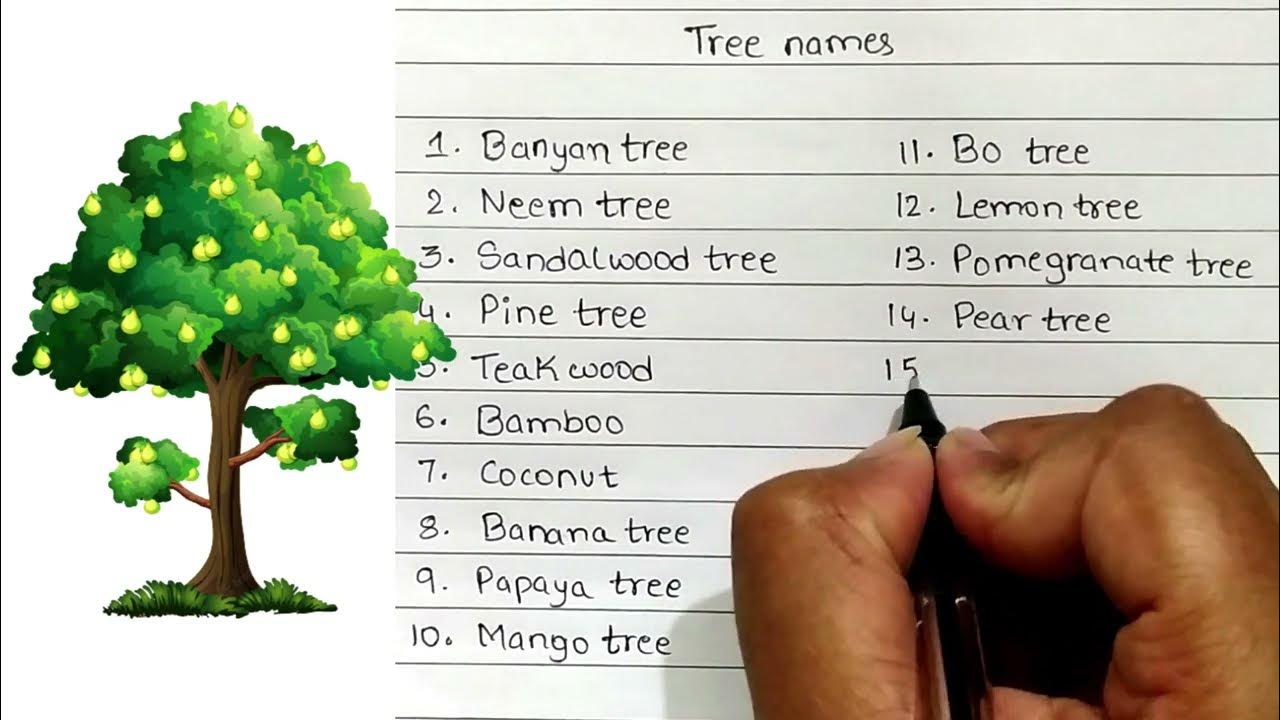 Tree names
1. Banyan tree
2. Neem tree
3. Sandalwood tree
4. Pine tree
5. Teak wood
6. Bamboo
7. Coconut
8. Banana tree
9. Papaya tree
10. Mango tree
11. Bo tree
12. Lemon tree
13. Pomegranate tree
14. Pear tree
15